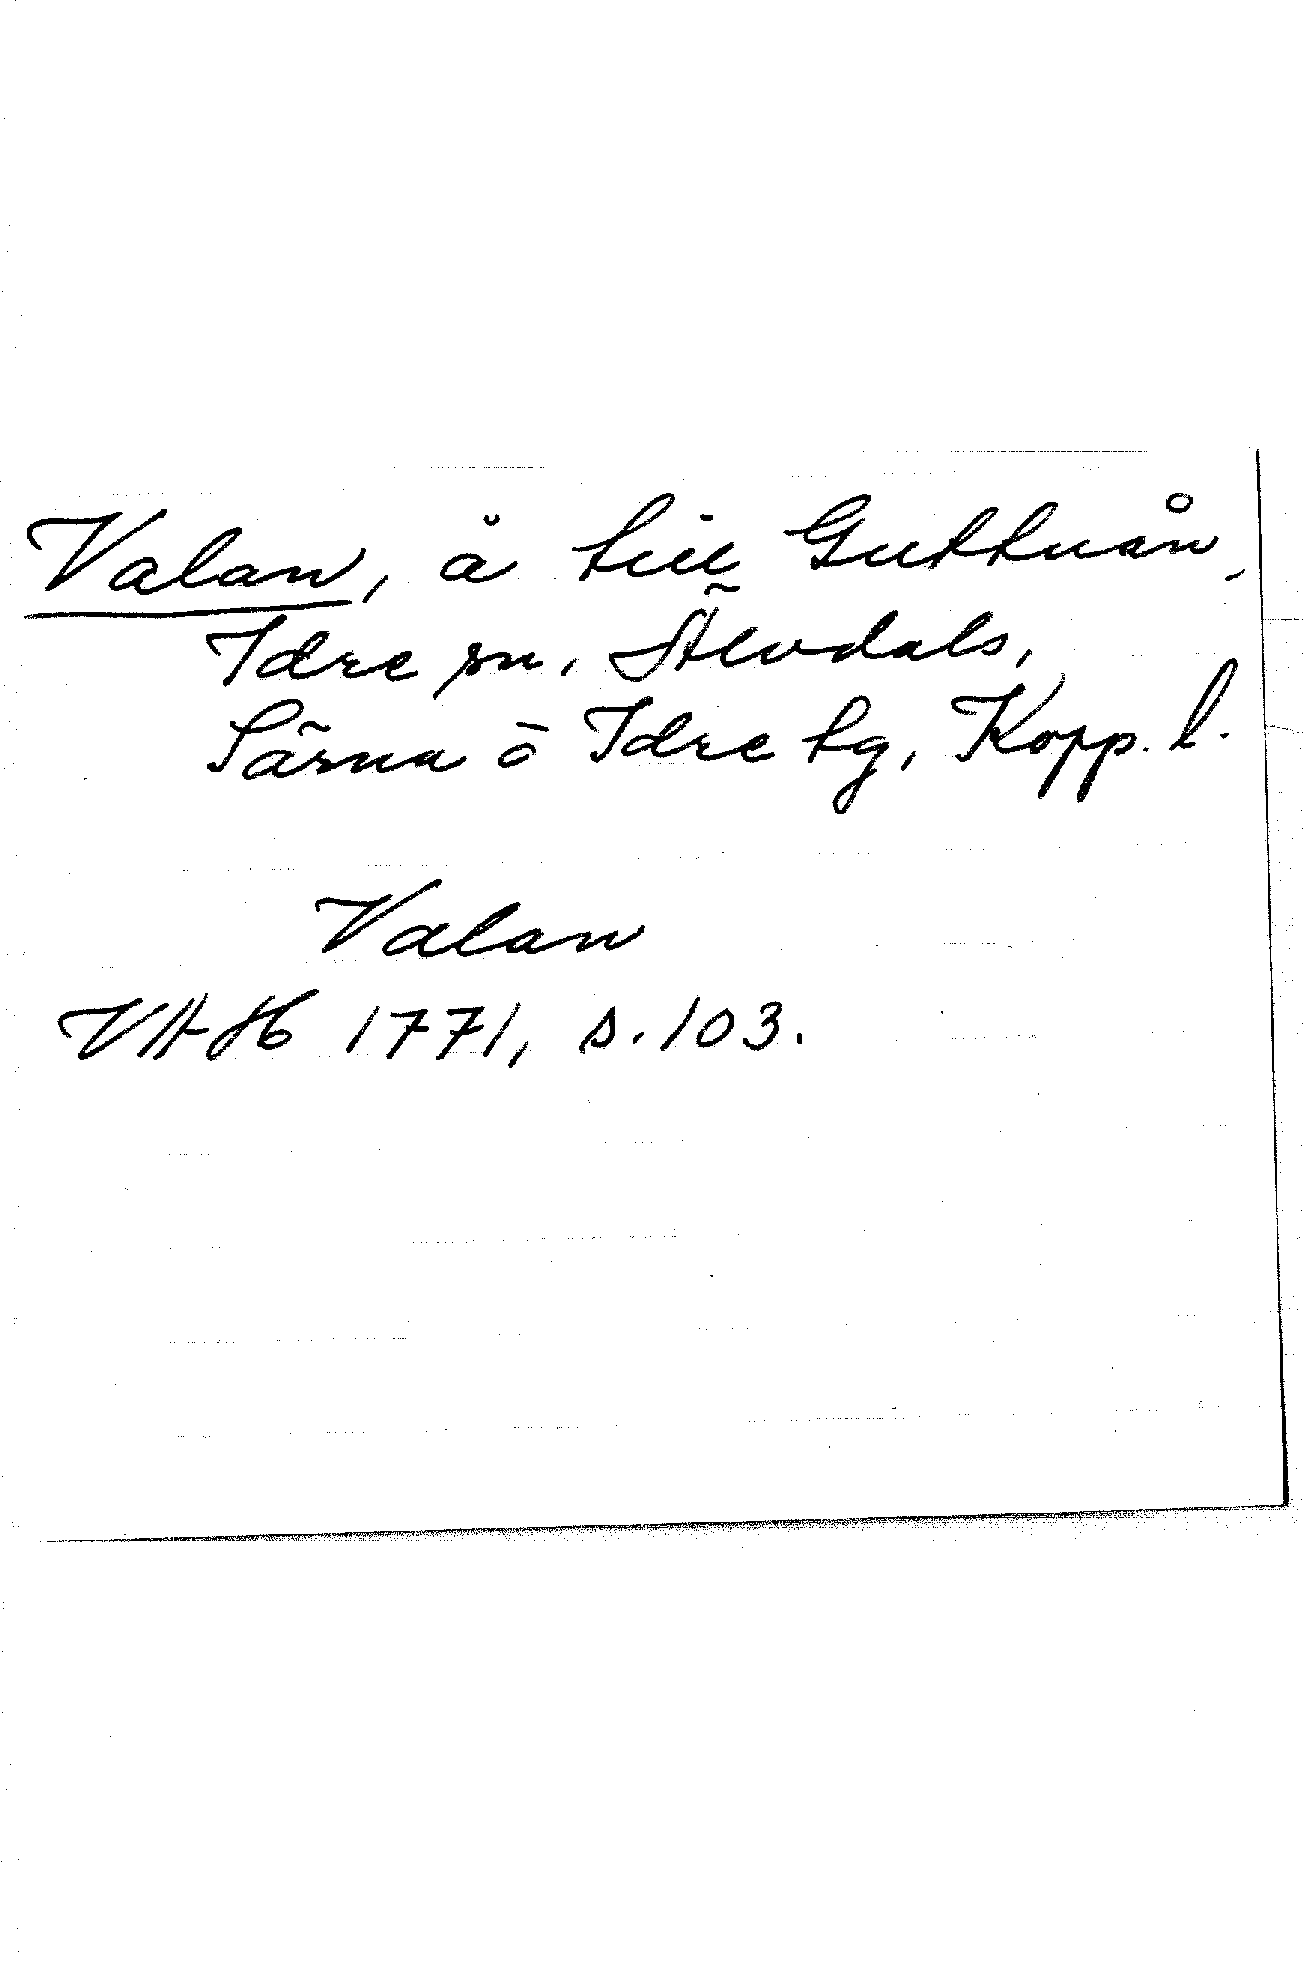 Valan, å till Guttuån,
Idre sn, Älvdals,
Särna o Idre tg, Kopp. l.
Valan
VAH 1771, s. 103.